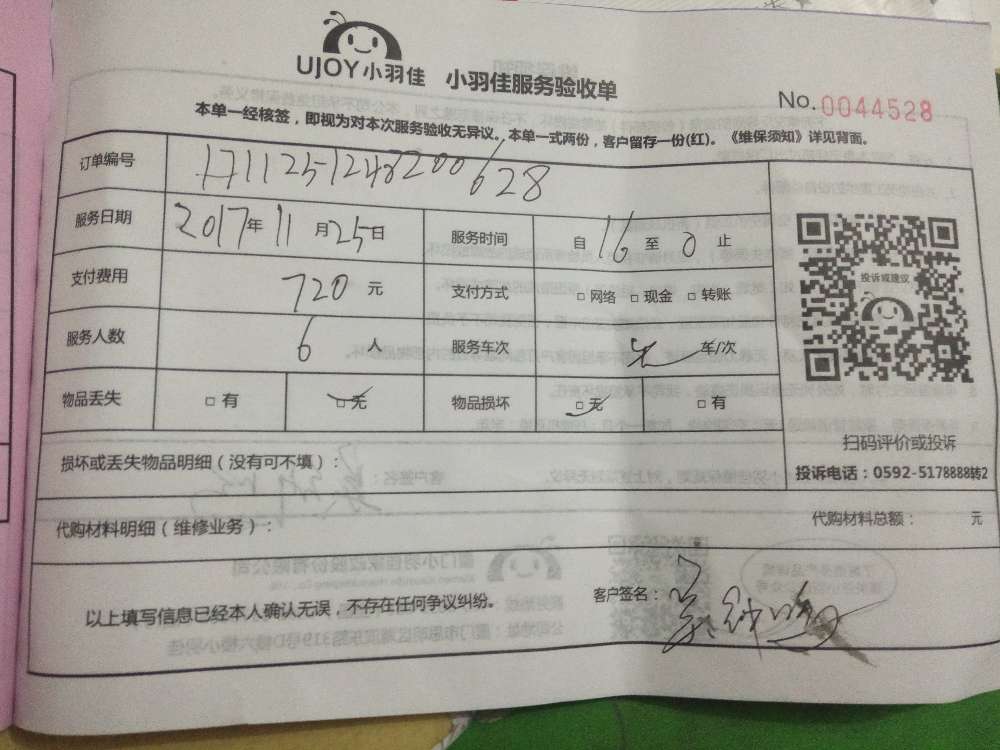 UJOY小羽佳 小羽佳服务验收单
No. 0044528
本单一经核签，即视为对本次服务验收无异议。本单一式两份，客户留存一份(红)。《维保须知》详见背面。
订单编号 1711251248200628
服务日期 2017年11月25日 服务时间 自16至0止
支付费用 720元 支付方式 □网络 □现金 □转账
服务人数 6人 服务车次 无 车/次
物品丢失 □有 □无 物品损坏 □无 □有
投诉或建议
扫码评价或投诉
投诉电话：0592-5178888转2
损坏或丢失物品明细（没有可不填）：
代购材料明细（维修业务）： 代购材料总额： 元
以上填写信息已经本人确认无误，不存在任何争议纠纷。 客户签名：